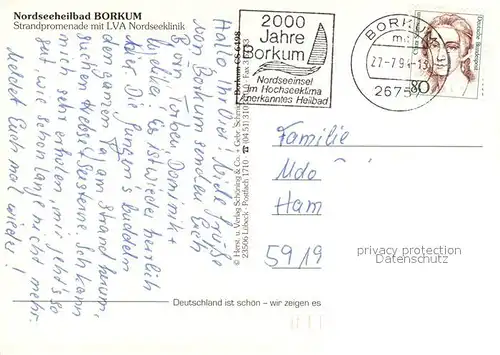 Nordseeheilbad BORKUM
Strandpromenade mit LVA Nordseeklinik
Hallo Ihr Drei! Viele Grüße
vom Borkum senden Euch
Björn, Torben, Dominik +
Es ist wieder herrlich
hier. Die Jungens buddeln
den ganzen Tag am Strand herum,
suchen Krebse, Seesterne. Ich kann
mich sehr erholen, mir geht's so
gut wie schon lange nicht mehr.
Meldet Euch mal wieder!
© Herst. u. Verlag Schöning & Co. + Gebr. Schmidt
23506 Lübeck · Postfach 1710 · ☎ (04 51) 3 10
Borkum
2000
Jahre
Borkum
Nordseeinsel
im Hochseeklima
Anerkanntes Heilbad
BORKUM
27-7.94-13
2675
Deutsche Bundespost
80
Familie
Udo
Ham
5919
privacy protection
Datenschutz
Deutschland ist schön – wir zeigen es